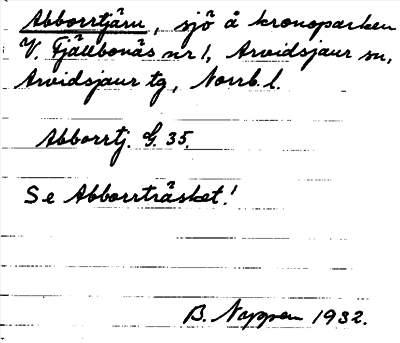 Abborrtjärn, sjö å kronoparken
V. Fjällbonäs nr 1, Arvidsjaur sn,
Arvidsjaur tg, Norrb. l.
Abborrtj. G. 35.
Se Abborrträsket!
B. Nappen 1932.